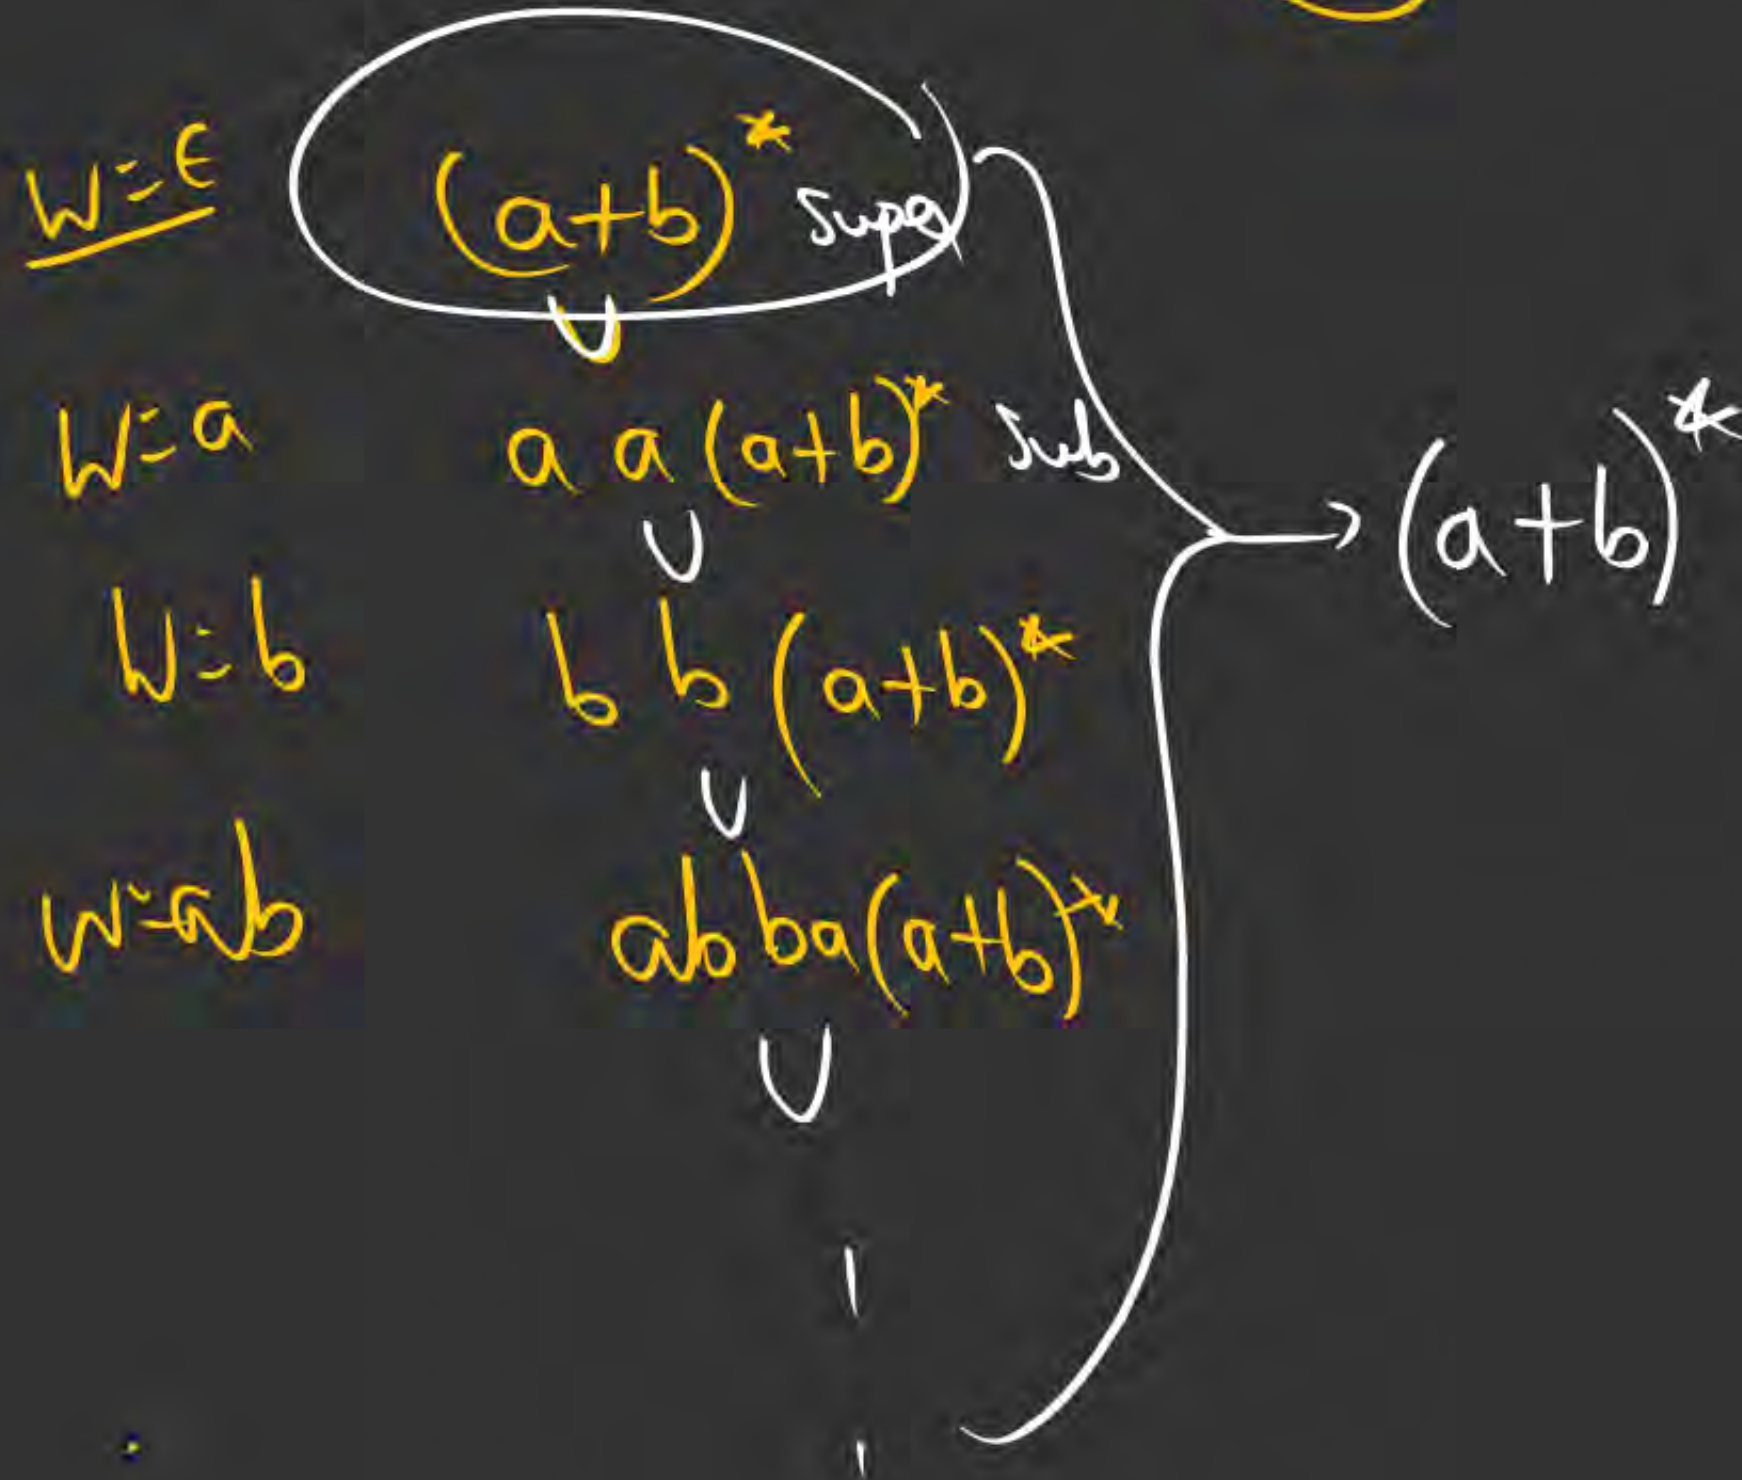 W=ϵ (a+b)* Super
∪
W=a a a (a+b)* Sub
∪
→ (a+b)*
W=b b b (a+b)*
∪
W=ab ab ba (a+b)*
∪